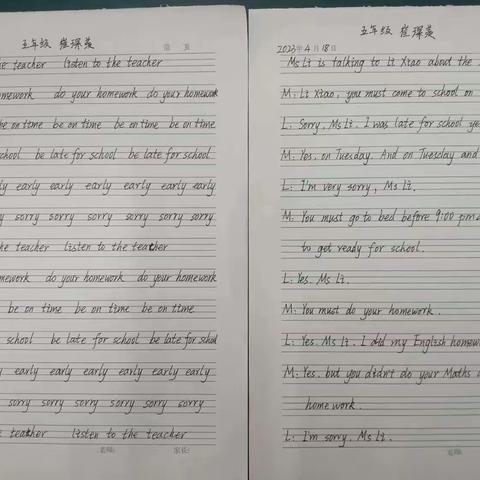 五年级 崔
the teacher listen to the teacher
homework do your homework do your homework
be on time be on time be on time be on time
school be late for school be late for school
early early early early early
sorry sorry sorry sorry sorry
the teacher listen to the teacher
homework do your homework do your homework
be on time be on time be on time
school be late for school be late for school
early early early early early
sorry sorry sorry sorry sorry
teacher listen to the teacher
老师: 家长:
五年级 崔
2023年4月18日
Ms Li is talking to Li Xiao about the
M: Li Xiao, you must come to school on
L: Sorry, Ms Li. I was late for school
M: Yes, on Tuesday. And on Tuesday and
L: I'm very sorry, Ms Li.
M: You must go to bed before 9:00 pm
to get ready for school.
L: Yes. Ms Li.
M: You must do your homework.
L: Yes. Ms Li. I did my English
M: Yes. but you didn't do your Maths
homework.
L: I'm sorry. Ms Li.
老师: